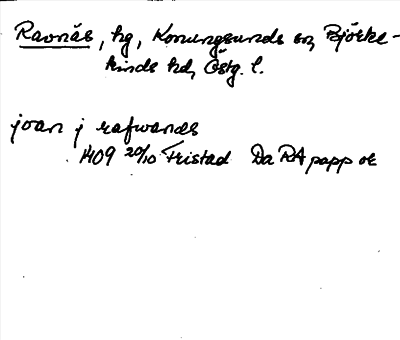 Ravnäs, hg, Konungsunds sn, Björke-
kinds hd, Östg. l.
joan j rafwands
1409 20/10 Fristad Da RA papp ok